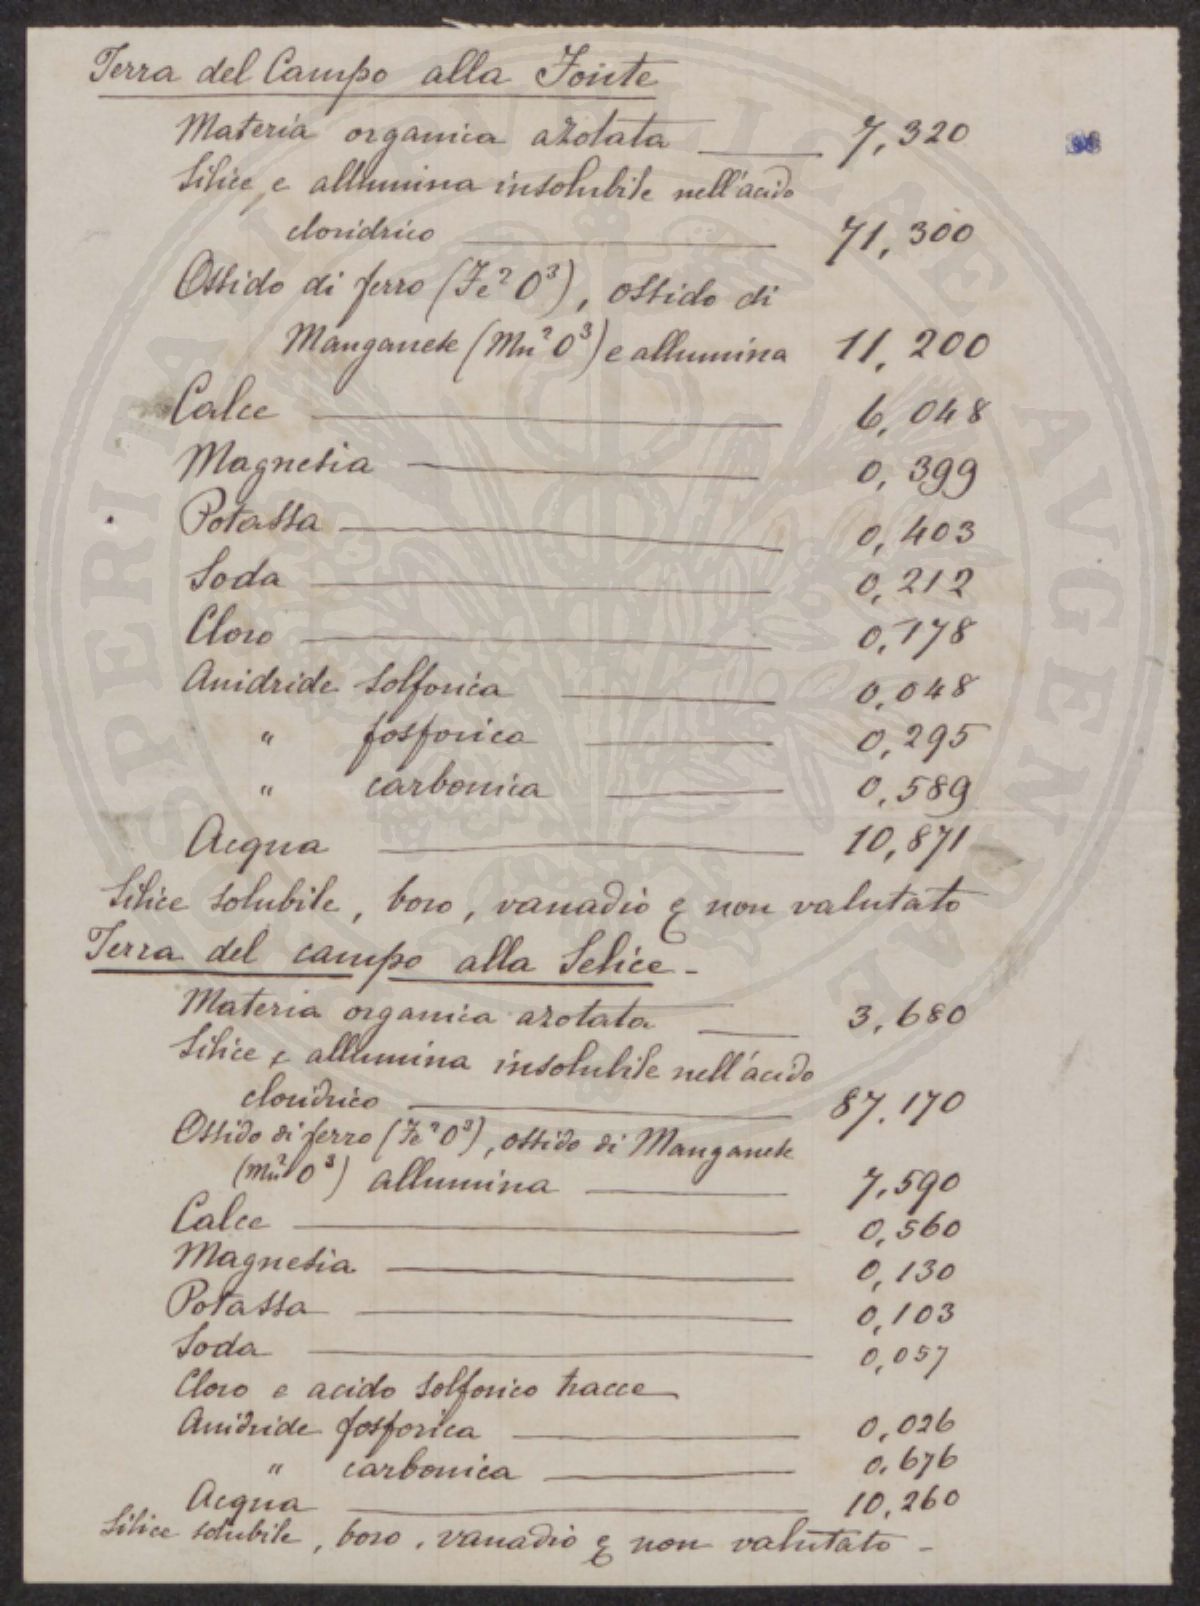 Terra del Campo alla Fonte
Materia organica azotata 7,320
Silice e allumina insolubile nell'acido
cloridrico 71,300
Ossido di ferro (Fe²O³), ossido di
Manganese (Mn²O³) e allumina 11,200
Calce 6,048
Magnesia 0,399
Potassa 0,403
Soda 0,212
Cloro 0,178
Anidride solforica 0,048
" fosforica 0,295
" carbonica 0,589
Acqua 10,871
Silice solubile, boro, vanadio & non valutato
Terra del campo alla Selice -
Materia organica azotata 3,680
Silice e allumina insolubile nell'acido
cloridrico 87.170
Ossido di ferro (Fe²O³), ossido di Manganese
(Mn²O³) allumina 7,590
Calce 0,560
Magnesia 0,130
Potassa 0,103
Soda 0,057
Cloro e acido solforico tracce
Anidride fosforica 0,026
" carbonica 0.676
Acqua 10,260
Silice solubile, boro, vanadio & non valutato -